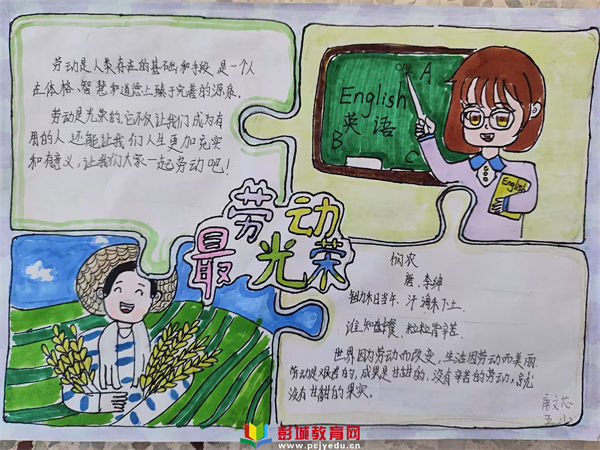 劳动是人类存在的基础和手段,是一个人
在体格、智慧和道德上臻于完善的源泉。
劳动是光荣的,它不仅让我们成为有
用的人,还能让我们人生更加充实
和有意义,让我们大家一起劳动吧!
one A
English
英语
B
C
English
劳动
最光荣
悯农
唐 李绅
锄禾日当午,汗滴禾下土,
谁知盘餐,粒粒皆辛苦
世界因劳动而改变,生活因劳动而美丽
劳动是艰辛的,成果是甘甜的,没有辛苦的劳动,就
没有甘甜的果实。
彭城教育网
www.pcjyedu.cn